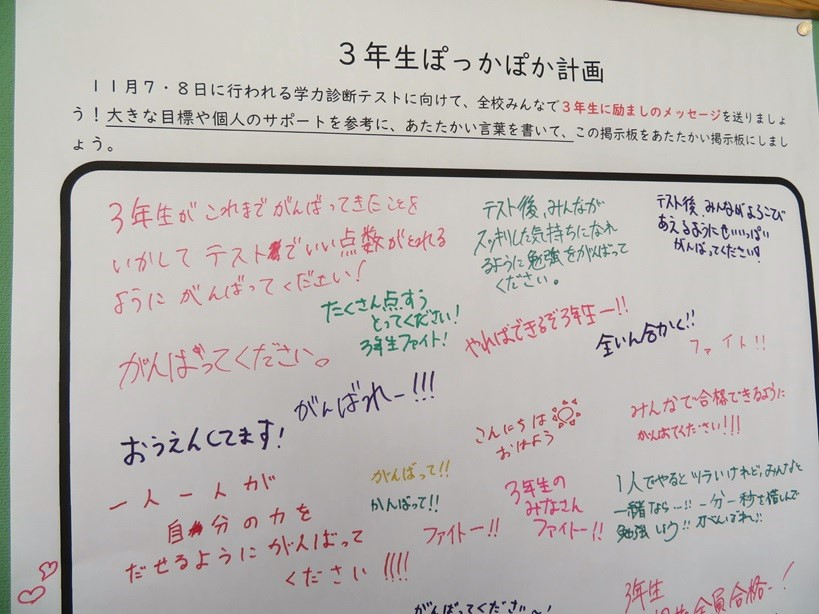 3年生ぽっかぽか計画
11月7・8日に行われる学力診断テストに向けて、全校みんなで3年生に励ましのメッセージを送りましょ
う！大きな目標や個人のサポートを参考に、あたたかい言葉を書いて、この掲示板をあたたかい掲示板にしまし
ょう。
3年生がこれまでがんばってきたことを
いかしてテストでいい点数がとれる
ようにがんばってください!
テスト後、みんなが
スッキリした気持ちになれ
るように勉強をがんばって
ください。
テスト後、みんながよろこび
あえるようにせいいっぱい
がんばってください!
たくさん点すう
とってください!
3年生ファイト!
がんばってください。
やればできるぞ3年生ー!!
全いん合かく!!
ファイト!!
がんばれー!!!
おうえんしてます!
こんにちは
おはよう
みんなで合格できるように
がんばってください!!!
一人一人が
自分の力を
だせるようにがんばって
ください!!!!
がんばって!!
がんばって!!
ファイトー!!
3年生の
みなさん
ファイトー!!
1人でやるとツライけれど、みんなと
一緒なら…!! 一分一秒を惜しんで
勉強しよう!! がんばれ!!
がんばってください〜!
3年生
全員合格〜!